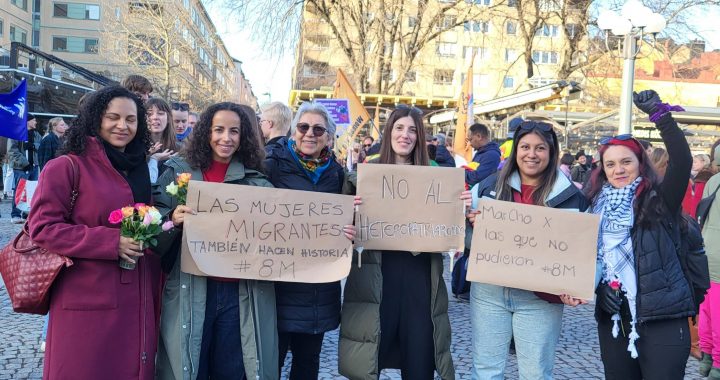 LAS MUJERES
MIGRANTES
TAMBIÉN HACEN HISTORIA
#8M
NO AL
HETEROPATRIARCADO
MarCho x
las que no
pudieron #8M